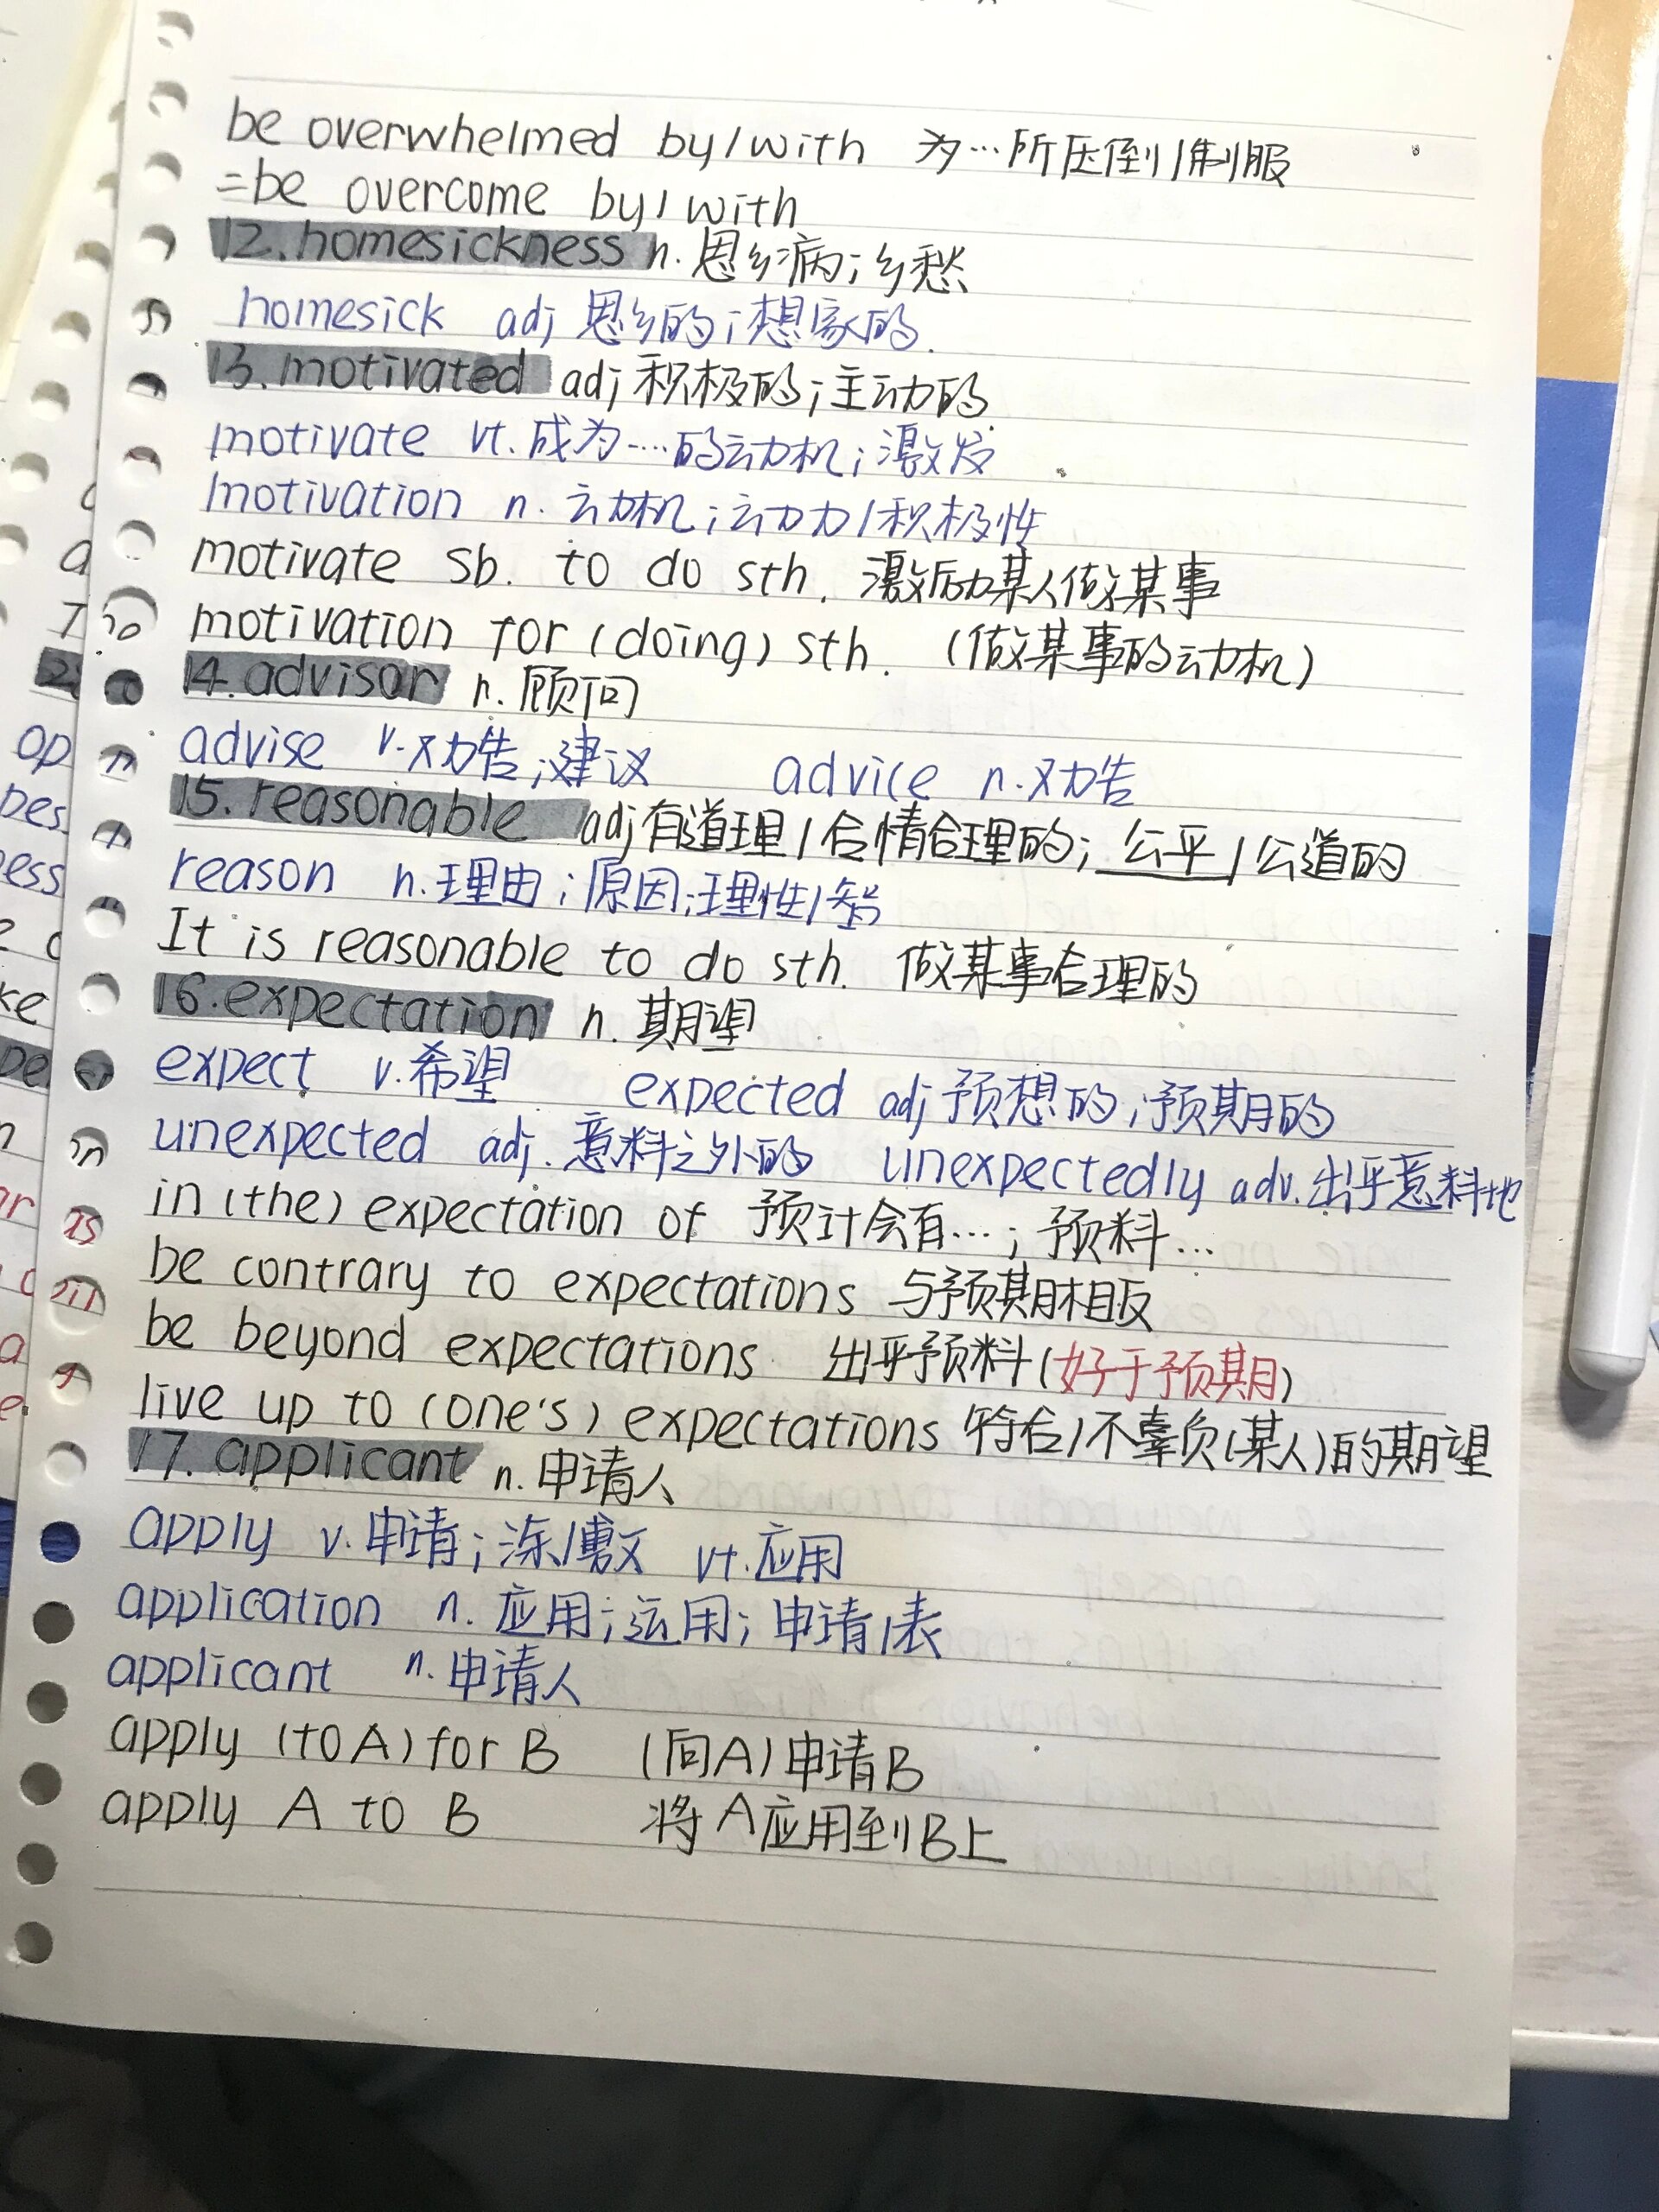 be overwhelmed by/with 为…所压倒/制服
=be overcome by/with
12.homesickness n.思乡病;乡愁
homesick adj 思乡的;想家的.
13.motivated adj 积极的;主动的
motivate vt.成为…的动机;激发
motivation n.动机;动力/积极性
motivate sb. to do sth. 激励某人做某事
motivation for(doing) sth. (做某事的动机)
14.advisor n.顾问
advise v.劝告;建议 advice n.劝告
15.reasonable adj有道理/合情合理的;公平/公道的
reason n.理由;原因;理性/智
It is reasonable to do sth. 做某事合理的
16.expectation n.期望
expect v.希望 expected adj 预想的;预期的
unexpected adj.意料之外的 unexpectedly adv.出乎意料地
in(the) expectation of 预计会有…;预料…
be contrary to expectations 与预期相反
be beyond expectations 出乎预料(好于预期)
live up to (one's) expectations 符合/不辜负(某人)的期望
17.applicant n.申请人
apply v.申请;涂/敷 vt.应用
application n.应用;运用;申请/表
applicant n.申请人
apply (to A) for B (向A)申请B
apply A to B 将A应用到B上